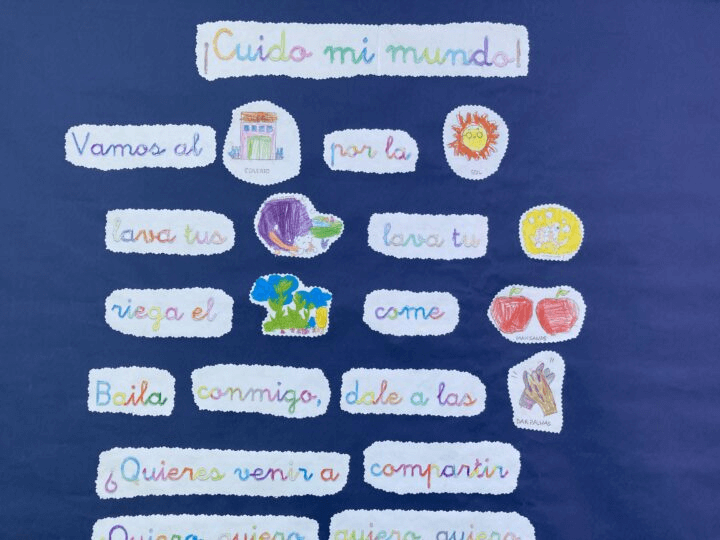 ¡Cuido mi mundo!
Vamos al COLEGIO por la SOL
lava tus lava tu
riega el come MANZANAS
Baila conmigo, dale a las DAR PALMAS
¿Quieres venir a compartir
Quiero, quiero quiero, quiero